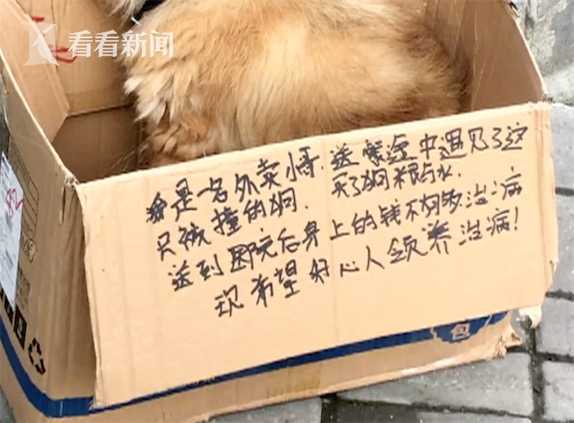 看看新闻
我是名外卖小哥.送餐途中遇见了这
只被撞的狗. 买了狗粮与水
送到医院后身上的钱不够治病
现希望好心人领养治病!
包